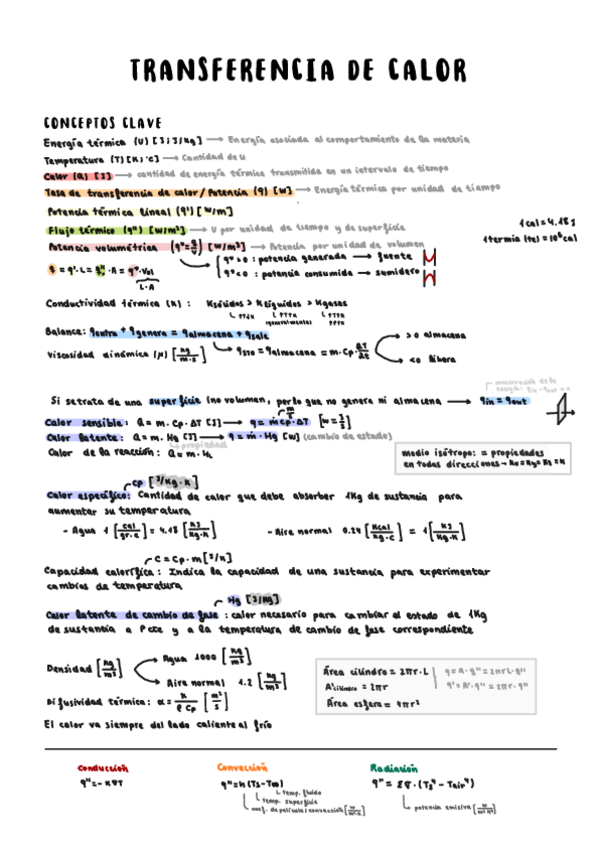 TRANSFERENCIA DE CALOR
CONCEPTOS CLAVE
Energía térmica (U) [J ; J/kg] → Energía asociada al comportamiento de la materia
Temperatura (T) [K ; °C] → Cantidad de U
Calor (Q) [J] → cantidad de energía térmica transmitida en un intervalo de tiempo
Tasa de transferencia de calor / Potencia (q) [W] → Energía térmica por unidad de tiempo
Potencia térmica lineal (q') [W/m]
Flujo térmico (q'') [W/m²] → U por unidad de tiempo y de superficie
1 cal = 4.18 J
Potencia volumétrica (q''' = q/V) [W/m³] → Potencia por unidad de volumen
1 termia (te) = 10⁶ cal
q''' > 0 : potencia generada → fuente
q''' < 0 : potencia consumida → sumidero
q = q'·L = q''·A = q'''·Vol
L·A
Conductividad térmica (K) : Ksólidos > Klíquidos > Kgases
generalmente
Balance: qentra + qgenera = qalmacena + qsale
> 0 almacena
Viscosidad dinámica (μ) [kg/m·s]
qsto = qalmacena = m·Cp·ΔT/Δt
< 0 libera
Si se trata de una superficie (no volumen, por lo que no genera ni almacena → qin = qout
Calor sensible: Q = m·Cp·ΔT [J] → q = ṁ·cp·ΔT [W = J/s]
Calor latente: Q = m·Hg [J] → q = ṁ·Hg [W] (cambio de estado)
propiedad
Calor de la reacción: Q = m·
medio isótropo: = propiedades
en todas direcciones → Kx = Ky = Kz = K
cp [J/kg·K]
Calor específico: Cantidad de calor que debe absorber 1Kg de sustancia para
aumentar su temperatura
- Agua 1 [cal/gr·c] = 4.18 [KJ/Kg·K]
- Aire normal 0.24 [Kcal/Kg·c] = 1 [KJ/Kg·K]
C = Cp·m [J/K]
Capacidad calorífica : Indica la capacidad de una sustancia para experimentar
cambios de temperatura
Hg [J/Kg]
Calor latente de cambio de fase : calor necesario para cambiar el estado de 1Kg
de sustancia a P cte y a la temperatura de cambio de fase correspondiente
Densidad [kg/m³]
Agua 1000 [kg/m³]
Aire normal 1.2 [kg/m³]
Área cilindro = 2πr·L
q = A·q'' = 2πrL·q''
A'cilindro = 2πr
q' = A'·q'' = 2πr·q''
Área esfera = 4πr²
Difusividad térmica: α = K/ρCp [m²/s]
El calor va siempre del lado caliente al frío
Conducción
Convección
Radiación
q'' = -K∇T
q'' = h(Ts - T∞)
q'' = εσ·(Ts⁴ - Tair⁴)
temp. fluido
temp. superficie
coef. de película / convección [W/m²K]
potencia emisiva [W/m²K⁴]